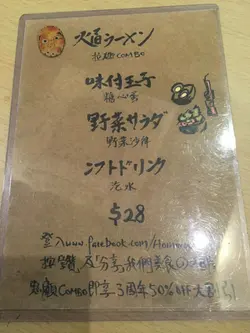 火道ラーメン
招牌COMBO
味付玉子
糖心蛋
野菜サラダ
野菜沙律
ソフトドリンク
汽水
$28
登入www.facebook.com/
按讚 及分享我們美食
惠顧Combo即享3周年50%OFF大